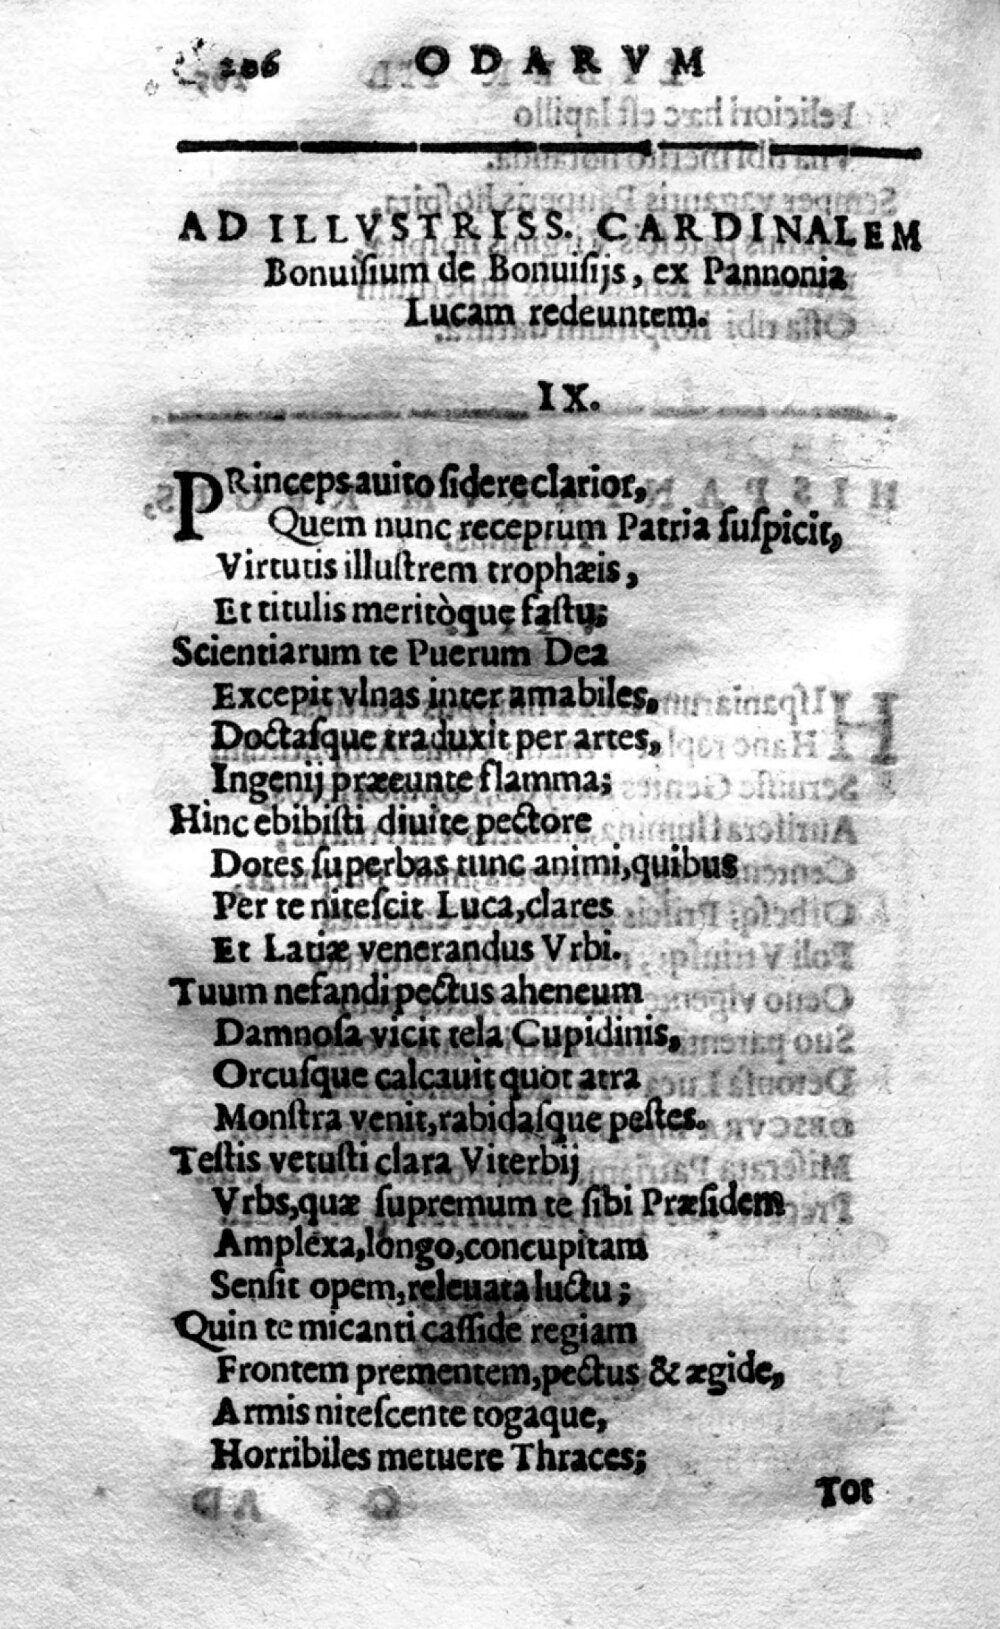 206 ODARVM
AD ILLVSTRISS. CARDINALEM
Bonuiſium de Bonuiſijs, ex Pannonia
Lucam redeuntem.
IX.
PRinceps auito ſidere clarior,
Quem nunc receptum Patria ſuſpicit,
Virtutis illuſtrem trophæis,
Et titulis meritòque faſtu;
Scientiarum te Puerum Dea
Excepit vlnas inter amabiles,
Doctaſque traduxit per artes,
Ingenij præeunte flamma;
Hinc ebibiſti diuite pectore
Dotes ſuperbas tunc animi, quibus
Per te niteſcit Luca, clares
Et Latiæ venerandus Vrbi.
Tuum nefandi pectus aheneum
Damnoſa vicit tela Cupidinis,
Orcuſque calcauit quot atra
Monſtra venit, rabidaſque peſtes.
Teſtis vetuſti clara Viterbij
Vrbs, quæ ſupremum te ſibi Præſidem
Amplexa, longo, concupitam
Senſit opem, releuata luctu;
Quin te micanti caſſide regiam
Frontem prementem, pectus & ægide,
Armis niteſcente togaque,
Horribiles metuere Thraces;
Tot